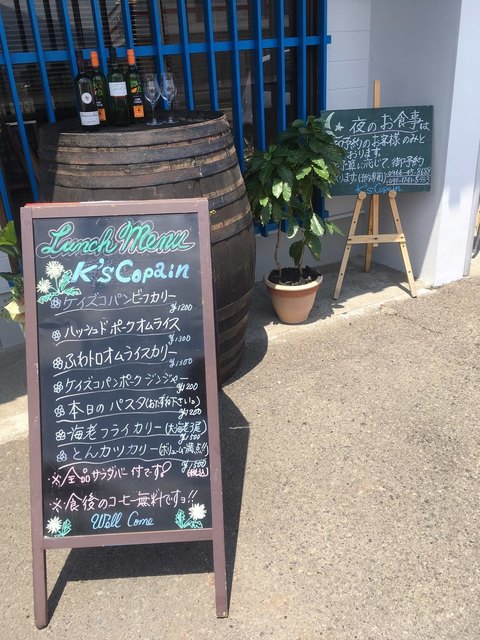 Lunch Menu
K's Copain
ケイズコパンビーフカリー
¥1200
ハッシュドポークオムライス
¥1300
ふわトロオムライスカリー
¥1300
ケイズコパンポークジンジャー
¥1200
本日のパスタ(お尋ね下さい。)
¥1200
海老フライカリー(大海老3尾)
¥1500
とんカツカリー(ボリューム満点!!)
¥1500
※全品サラダバー付です♡ (税込)
※食後のコーヒー無料ですョ!!
Well Come
夜のお食事は
御予約のお客様のみと
おります。
に応じて、御予約
K's Copain